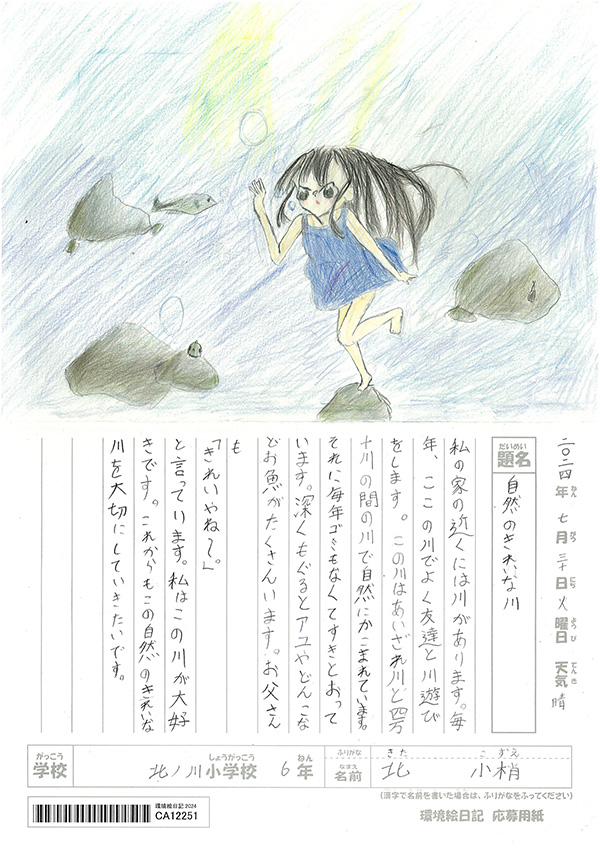 二〇二四年七月三十日火曜日 天気 晴
ねん がつ にち ようび てんき
だいめい
題名 自然のきれいな川
私の家の近くには川があります。毎
年、ここの川でよく友達と川遊び
をします。この川はあいざれ川と四万
十川の間の川で自然にかこまれています。
それに毎年ゴミもなくてすきとおって
います。深くもぐるとアユやどんこな
どお魚がたくさんいます。お父さん
も
「きれいやね〜。」
と言っています。私はこの川が大好
きです。これからもこの自然のきれいな
川を大切にしていきたいです。
がっこう しょうがっこう ねん
学校 北ノ川小学校 6年
ふりがな きた こずえ
なまえ
名前 北 小梢
(漢字で名前を書いた場合は、ふりがなをふってください)
環境絵日記 2024
CA12251
環境絵日記 応募用紙